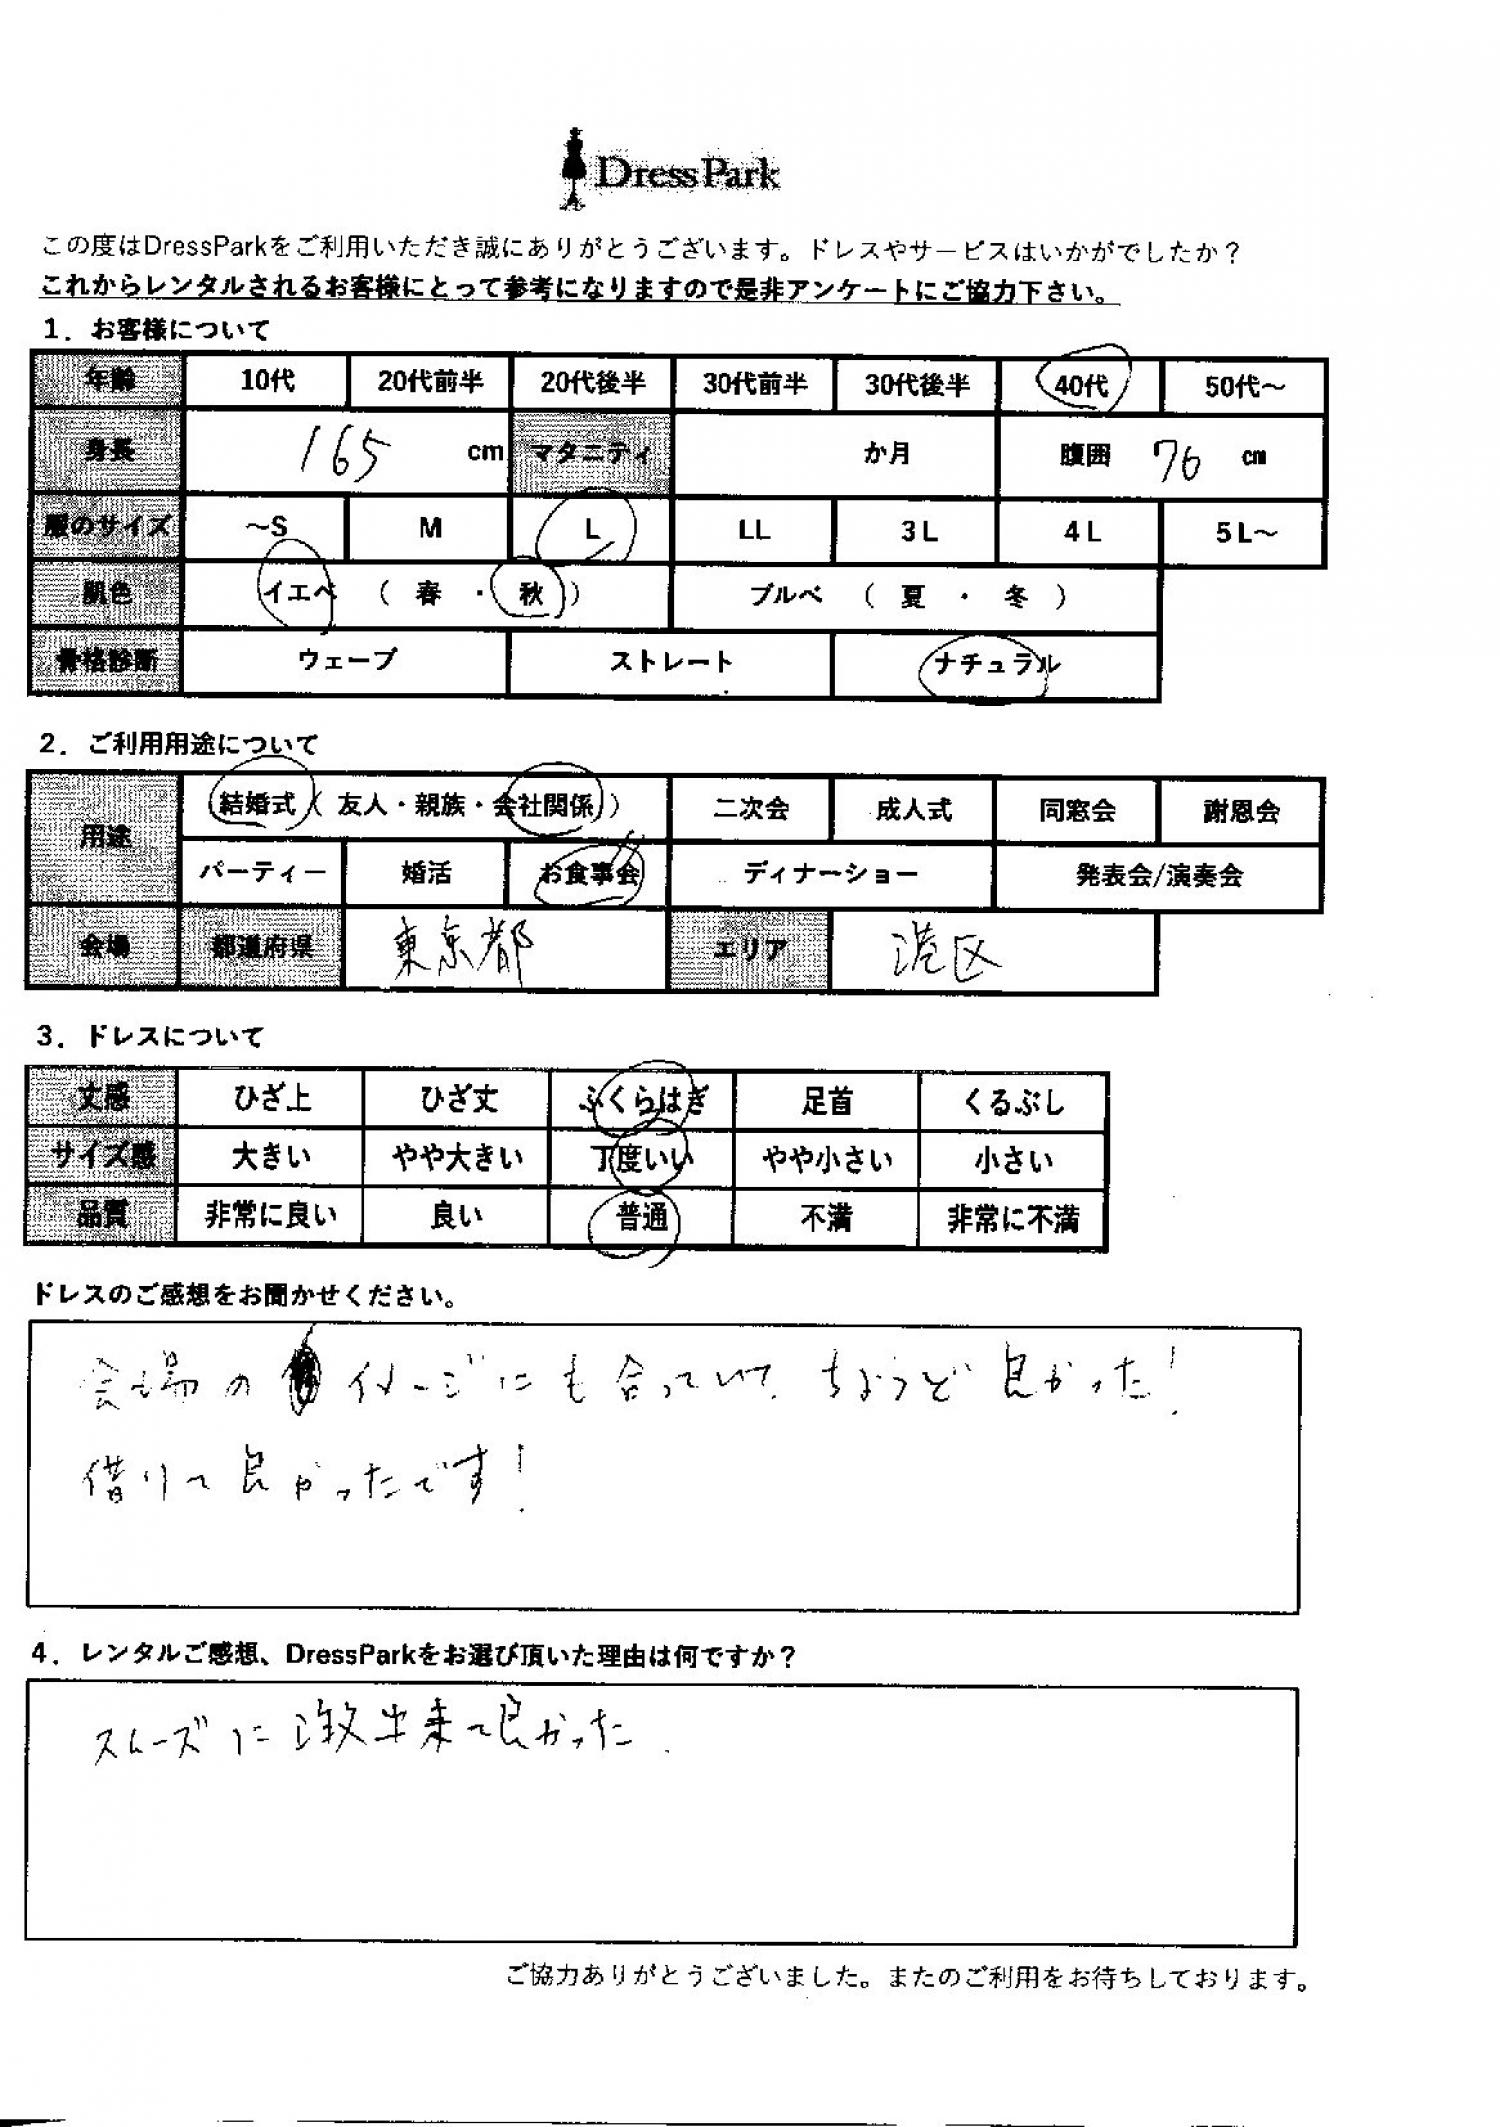 DressPark
この度はDressParkをご利用いただき誠にありがとうございます。ドレスやサービスはいかがでしたか？
これからレンタルされるお客様にとって参考になりますので是非アンケートにご協力下さい。
1．お客様について
年齢 10代 20代前半 20代後半 30代前半 30代後半 40代 50代～
身長 165 cm マタニティ か月 腹囲 76 cm
服のサイズ ～S M L LL 3L 4L 5L～
肌色 イエベ （ 春 ・ 秋 ） ブルベ （ 夏 ・ 冬 ）
骨格診断 ウェーブ ストレート ナチュラル
2．ご利用用途について
用途 結婚式（ 友人・親族・会社関係 ） 二次会 成人式 同窓会 謝恩会
パーティー 婚活 お食事会 ディナーショー 発表会/演奏会
会場 都道府県 東京都 エリア 港区
3．ドレスについて
丈感 ひざ上 ひざ丈 ふくらはぎ 足首 くるぶし
サイズ感 大きい やや大きい 丁度いい やや小さい 小さい
品質 非常に良い 良い 普通 不満 非常に不満
ドレスのご感想をお聞かせください。
会場の イメージにも合っていて、ちょうど良かった！
借りて良かったです！
4．レンタルご感想、DressParkをお選び頂いた理由は何ですか？
スムーズに 出来て良かった
ご協力ありがとうございました。またのご利用をお待ちしております。